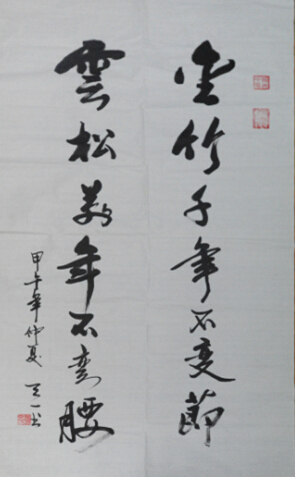 竹千年不变節
雲松萬年不弯腰
甲午年仲夏 天一书